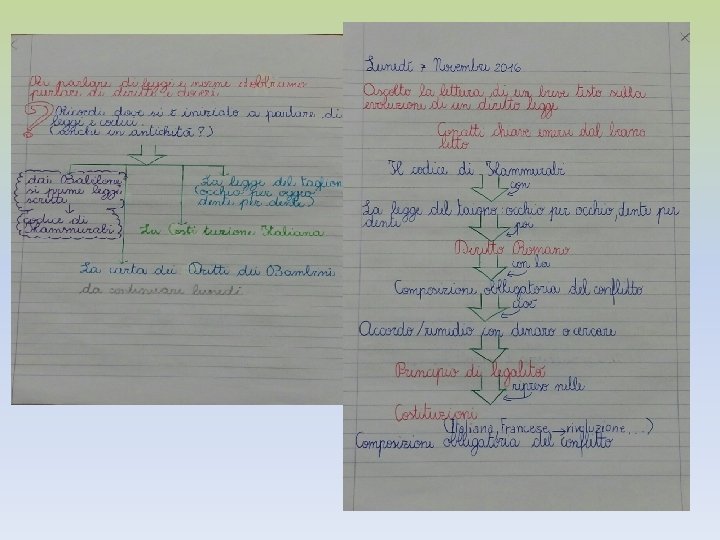 Per parlare di leggi e norme dobbiamo
parlare di diritti e doveri
Ricordi dove si è iniziato a parlare di
leggi e codici.
(anche in antichità?)
dai Babilonesi
si prime leggi
scritte
codice di
Hammurabi
La legge del taglione
(occhio per occhio
dente per dente)
La Costituzione Italiana
La carta dei Diritti dei Bambini
da continuare lunedì
Lunedì 7 Novembre 2016
Ascolto la lettura di un breve testo sulla
evoluzione di un diritto legge
Concetti chiave emersi dal brano
letto
Il codice di Hammurabi
con
La legge del taglione: occhio per occhio, dente per
dente
poi
Diritto Romano
con la
Composizione obbligatoria del conflitto
cioè
Accordo/rimedio con denaro o cercare
Principio di legalità
ripreso nelle
Costituzioni
(Italiana, Francese → rivoluzione...)
Composizione obbligatoria del conflitto